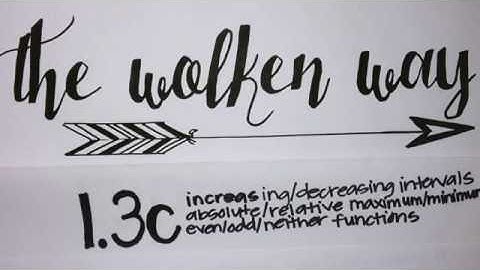 the wolken way
1.3c
increasing/decreasing intervals
absolute/relative maximum/minimum
even/odd/neither functions